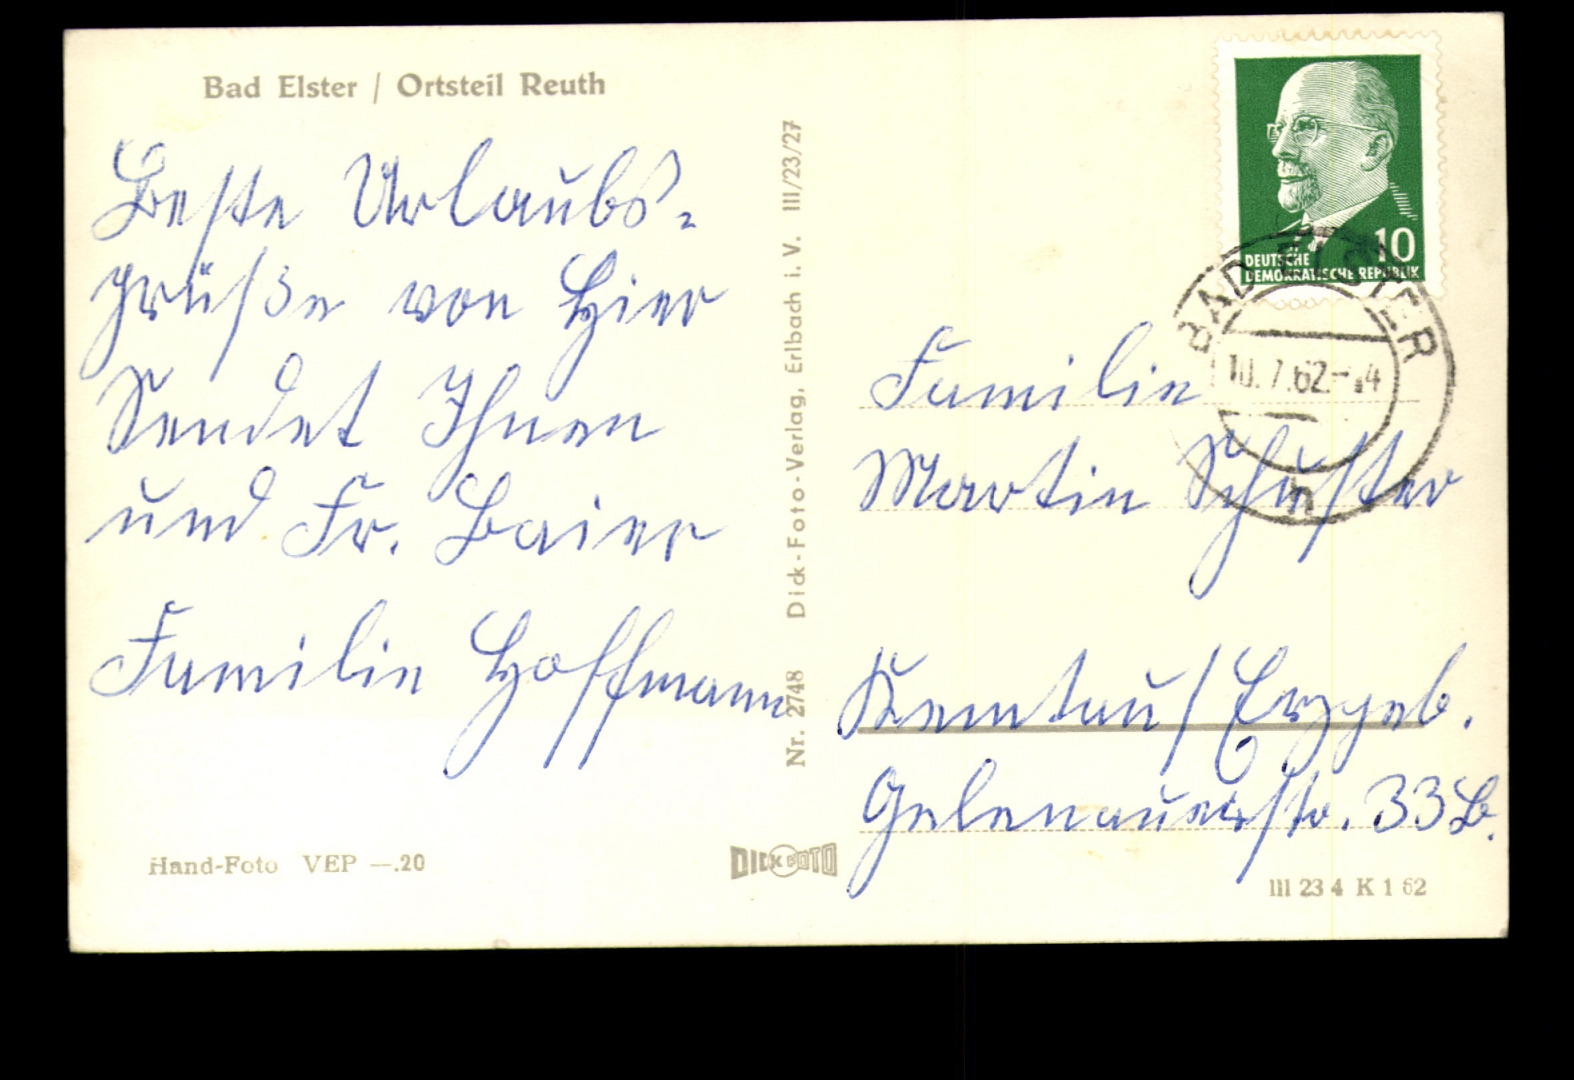 Bad Elster / Ortsteil Reuth
Beste Urlaubs-
grüße von Hier
Sendet Ihnen
und Fr. Baier
Familie Hoffmann
Hand-Foto VEP —.20
Nr. 2748 Dick-Foto-Verlag, Erlbach i. V. III/23/27
DICK FOTO
10
DEUTSCHE
DEMOKRATISCHE REPUBLIK
BAD ELSTER
10.7.62-14
h
Familie
Martin Schuster
Kemtau/Erzgeb.
Gelenauerstr. 33B.
III 23 4 K 1 62